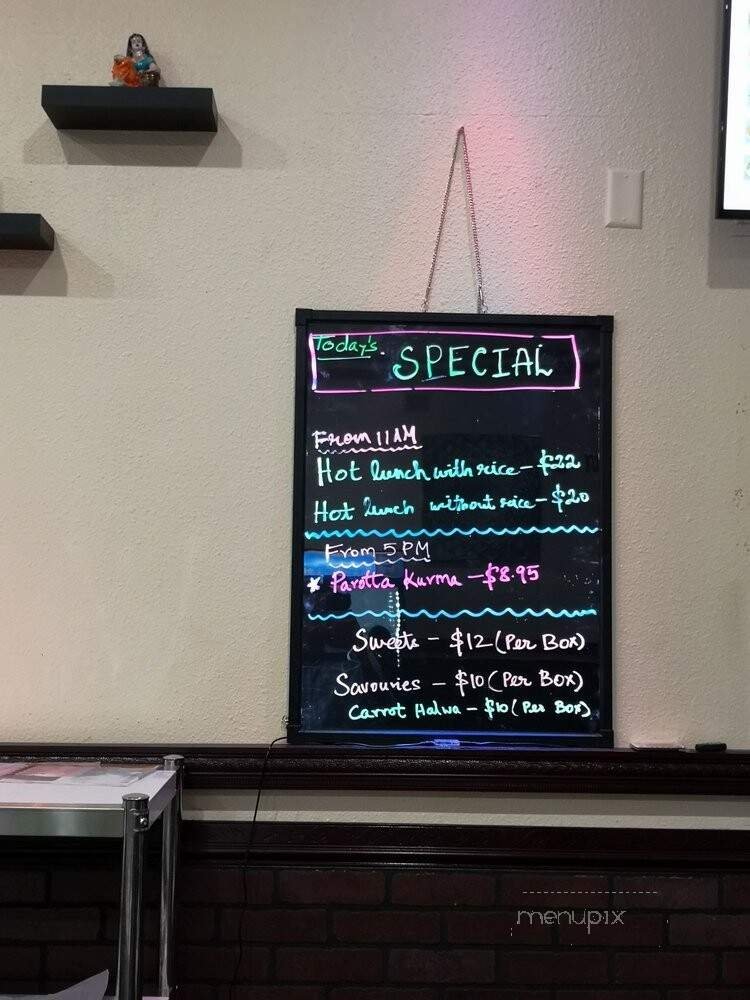 Today's
SPECIAL
From 11AM
Hot lunch with rice - $22
Hot lunch without rice - $20
From 5 PM
Parotta Kurma - $8.95
Sweets - $12 (Per Box)
Savouries - $10 (Per Box)
Carrot Halwa - $10 (Per Box)
menupix